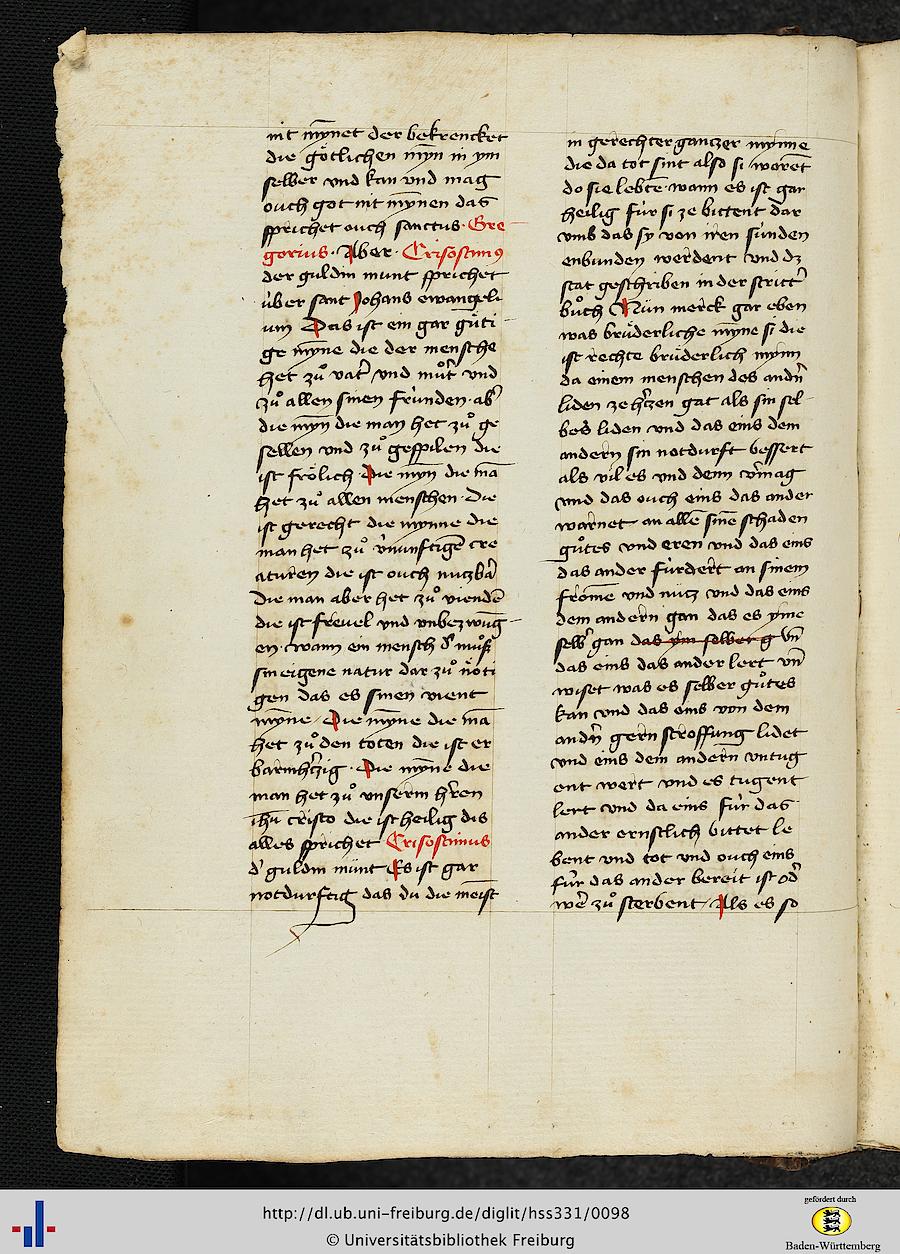 nit mÿnet der bekrencket
die götlichen mẏn in ym
selber vnd kan vnd mag
ouch got nit mẏnen das
sprichet ouch sanctus · Gre
gorius · Aber · Crisostimꝰ
der guldin munt sprichet
über sant Johans ewangeli
um Das ist ein gar gůti
ge mẏne die der mensche
het zů vat̾ vnd můt̾ vnd
zů allen sinen frúnden · ab̾
die mẏn die man het zů ge
sellen vnd zů gespilen die
ist frölich Die mẏn die mā
het zů allen menschen · Die
ist gerecht die mynne die
man het zů v̾nunftigē cre
aturen die ist ouch nuczbā
Die man aber het zů viendē
die ist freuel vnd vnbezwūg
en · wann ein mensch d̾ můß
sin eigene natur dar zů nöti
gen das es sinen vient
mẏne / Die mẏne die mā
het zů den toten die ist er
barmh̾czig · Die mẏne die
man het zů vnserm h̾ren
ihū cristo die ist heilig dis
alles sprichet Crisostimus
d̾ guldin munt Es ist gar
notdurftig das du die meist
in gerechter ganczer mynne
die da tot sint also si werēt
do sie lebtē · wann es ist gar
heilig für si ze bittent dar
vmb das sy von iren sünden
enbunden werdent vnd dz
stat geschriben in der stritt̾
bůch Nün merck gar eben
was brüderliche mẏne si die
ist rechte brüderlich mynn
da einem menschen des and̾n
liden ze h̾zen gat als sin sel
bes liden vnd das eins dem
andern sin notdurft bessert
als vil es vnd denn v̾mag
vnd das ouch eins das ander
warnet an allē sinē schaden
gůtes vnd eren vnd das eins
das ander fürdert an sinem
fromē vnd nücz vnd das eins
dem andern gan das es yme
selb̾ gan das ym selber g vn̄
das eins das ander lert vn̄
wiset was es selber gůtes
kan vnd das eins von dem
and̾n gern stroffung lidet
vnd eins dem andern vntug
ent wert vnd es tugent
lert vnd da eins für das
ander ernstlich bittet le
bent vnd tot vnd ouch eins
für das ander bereit ist od̾
wer zů sterbent / Als es so
http://dl.ub.uni-freiburg.de/diglit/hss331/0098
© Universitätsbibliothek Freiburg
gefördert durch
Baden-Württemberg